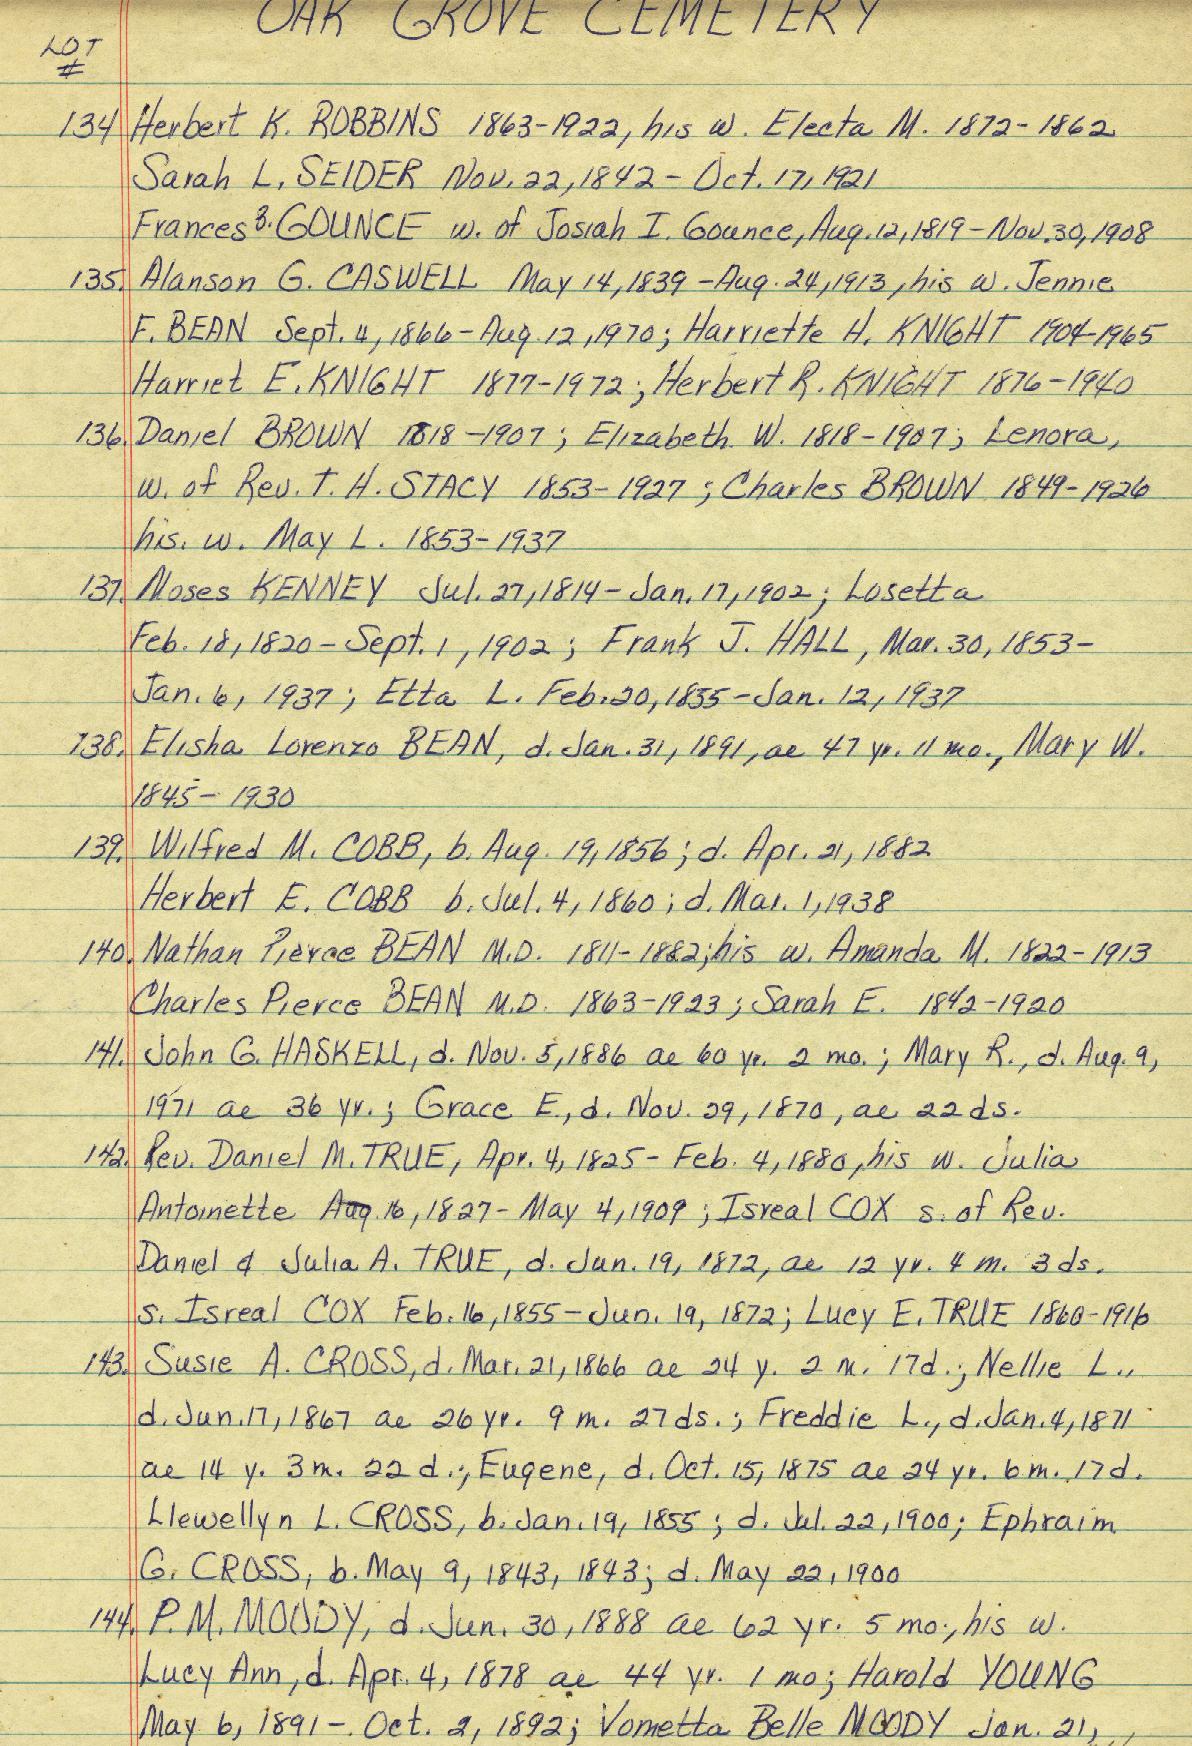 OAK GROVE CEMETERY
LOT
#
134 Herbert K. ROBBINS 1863-1922, his w. Electa M. 1872-1862
Sarah L. SEIDER Nov. 22, 1842 - Oct. 17, 1921
Frances B. GOUNCE w. of Josiah I. Gounce, Aug. 12, 1819 - Nov. 30, 1908
135. Alanson G. CASWELL May 14, 1839 - Aug. 24, 1913, his w. Jennie
F. BEAN Sept. 4, 1866 - Aug. 12, 1970; Harriette H. KNIGHT 1904-1965
Harriet E. KNIGHT 1877-1972; Herbert R. KNIGHT 1876-1940
136. Daniel BROWN 1818-1907; Elizabeth W. 1818-1907; Lenora,
w. of Rev. T. H. STACY 1853-1927; Charles BROWN 1849-1926
his. w. May L. 1853-1937
137. Moses KENNEY Jul. 27, 1814 - Jan. 17, 1902; Losetta
Feb. 18, 1820 - Sept. 1, 1902; Frank J. HALL, Mar. 30, 1853-
Jan. 6, 1937; Etta L. Feb. 20, 1855 - Jan. 12, 1937
138. Elisha Lorenzo BEAN, d. Jan. 31, 1891, ae 47 yr. 11 mo., Mary W.
1845 - 1930
139. Wilfred M. COBB, b. Aug. 19, 1856; d. Apr. 21, 1882
Herbert E. COBB b. Jul. 4, 1860; d. Mar. 1, 1938
140. Nathan Pierce BEAN M.D. 1811-1882; his w. Amanda M. 1822-1913
Charles Pierce BEAN M.D. 1863-1923; Sarah E. 1842-1920
141. John G. HASKELL, d. Nov. 5, 1886 ae 60 yr. 2 mo.; Mary R., d. Aug. 9,
1971 ae 36 yr.; Grace E., d. Nov. 29, 1870, ae 22 ds.
142. Rev. Daniel M. TRUE, Apr. 4, 1825 - Feb. 4, 1880, his w. Julia
Antoinette Aug. 16, 1827 - May 4, 1909; Isreal COX s. of Rev.
Daniel & Julia A. TRUE, d. Jun. 19, 1872, ae 12 yr. 4 m. 3 ds.
s. Isreal COX Feb. 16, 1855 - Jun. 19, 1872; Lucy E. TRUE 1860-1916
143. Susie A. CROSS, d. Mar. 21, 1866 ae 24 y. 2 m. 17 d.; Nellie L.,
d. Jun. 17, 1867 ae 26 yr. 9 m. 27 ds.; Freddie L., d. Jan. 4, 1871
ae 14 y. 3 m. 22 d.; Eugene, d. Oct. 15, 1875 ae 24 yr. 6 m. 17 d.
Llewellyn L. CROSS, b. Jan. 19, 1855; d. Jul. 22, 1900; Ephraim
G. CROSS, b. May 9, 1843, 1843; d. May 22, 1900
144. P. M. MOODY, d. Jun. 30, 1888 ae 62 yr. 5 mo., his w.
Lucy Ann, d. Apr. 4, 1878 ae 44 yr. 1 mo; Harold YOUNG
May 6, 1891 - Oct. 2, 1892; Vometta Belle MOODY Jan. 21,